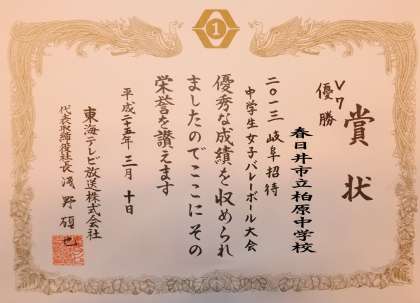 1
賞状
V7
優勝
春日井市立柏原中学校
二〇一三 岐阜招待
中学生女子バレーボール大会
優秀な成績を収められ
ましたのでここにその
栄誉を讃えます
平成二十五年 三月 十日
東海テレビ放送株式会社
代表取締役社長 浅野碩也